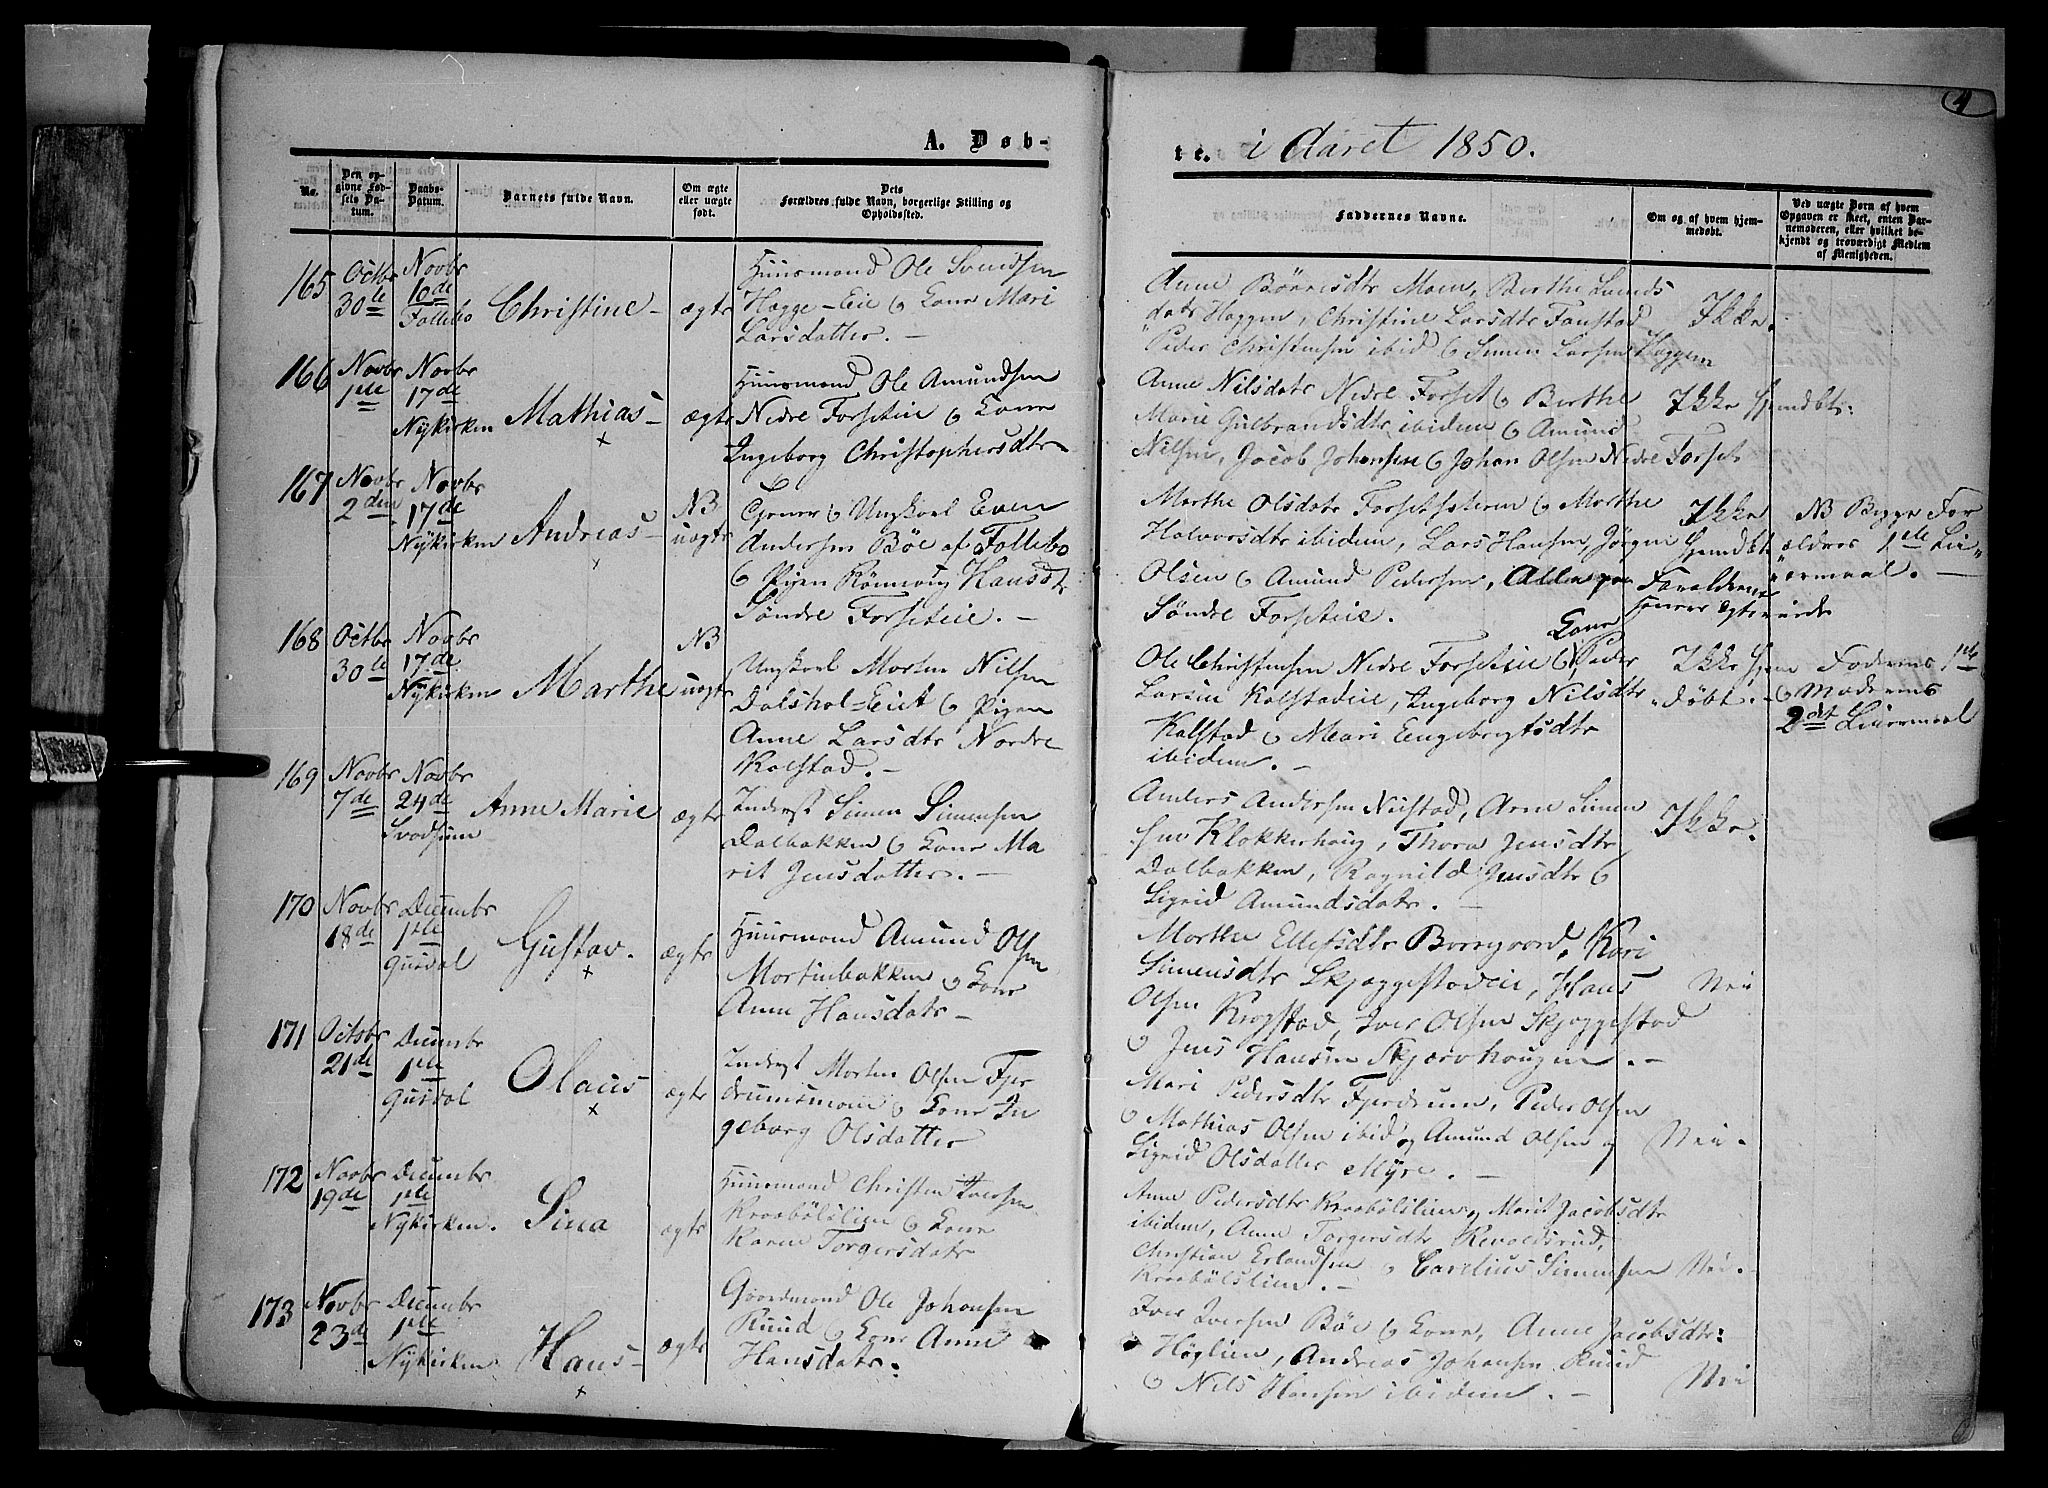 4
A. Døb-
te. i Aaret 1850.
No.
Den op-
givne Fød-
sels Da-
tum.
Daabs-
Datum.
Barnets fulde Navn.
Om ægte
eller uægte
født.
Dets
Forældres fulde Navn, borgerlige Stilling og
Opholdssted.
Faddernes Navne.
Om og af hvem hjem-
medøbt.
Ved uægte Børn af hvem
Opgaven er skeet, enten Bar-
nemoderen, eller hvilket be-
kjendt og troværdigt Medlem
af Menigheden.
165
Octbr
30te
Novbr
10de
Follebo
Christine
ægte
Huusmand Ole Svendsen
Hagge-Eie & Kone Mari
Larsdatter.
Anne Börresdtr Moen, Berthe Svends
datr Haggen, Christine Larsdtr Fanstad
Peder Christensen ibid & Simen Larsen Haggen
Ikke.
166
Novbr
1ste
Novbr
17de
Nykirken
Mathias
ægte
Huusmand Ole Amundsen
Nedre Forseteie & Kone
Ingeborg Christophersdtr
Anne Nilsdatr Nedre Forset & Berthe
Marie Gulbrandsdtr ibidem & Amund
Nilsen, Jacob Johansen & Johan Olsen Nedre Forset
Ikke hjemdbt:
167
Novbr
2den
Novbr
17de
Nykirken
Andreas
NB
uægte
Ungkarl Even
Andersen Böe af Follebo
& Pigen Rönnoug Hansdtr
Söndre Forseteie.
Marthe Olsdatr Forsetseteren & Marthe
Halvorsdtr ibidem, Lars Hansen, Jörgen
Olsen & Amund Pedersen, Alle paa
Söndre Forseteie.
Ikke
hjemdbt
Forældrene
senere ægteviede
NB Begge For
ældres 1ste Lei
ermaal.
168
Octbr
30te
Novbr
17de
Nykirken
Marthe
NB
uægte
Ungkarl Morten Nilsen
Dalshol-Eiet & Pigen
Anne Larsdtr Nordre
Kalstad.
Ole Christensen Nedre Forseteie & Kone, Peder
Larsen Kalstadeie, Ingeborg Nilsdtr
Kalstad & Mari Engebregtsdtr
ibidem.
Ikke hjem
døbt.
Faderens 1ste
& Moderens
2det Leiermaal
169
Novbr
7de
Novbr
24de
Svadsum
Anne Marie
ægte
Inderst Simen Simensen
Dalbakken & Kone Ma
rit Jensdatter.
Anders Andersen Nustad, Arne Simen
sen Klokkerhaug, Thora Jensdtr
Dalbakken, Ragnild Jensdtr &
Sigrid Amundsdatr.
Ikke.
170
Novbr
18de
Decembr
1ste
Gusdal
Gustav.
ægte
Huusmand Amund Olsen
Mortinbakken & Kone
Anne Hansdatr
Marthe Ellefsdtr Borregaard, Kari
Simensdtr Skjæggestadeie, Hans
Olsen Krogstad, Iver Olsen Skjæggestad
& Jens Hansen Skjærvhougen.
Nei
171
Octobr
21de
Decembr
1ste
Gusdal
Olaus
ægte
Inderst Morten Olsen Fjer
drumsmoen & Kone In
geborg Olsdatter
Mari Pedersdtr Fjerdrum, Peder Olsen
& Mathias Olsen ibid og Amund Olsen og
Sigrid Olsdatter Myre.
Nei.
172
Novbr
19de
Decembr
1ste
Nykirken.
Sina
ægte
Huusmand Christen Iversen
Kraabölslien & Kone
Karen Torgersdatr
Anne Pedersdtr Kraabölslien, Marit Jacobsdtr
ibidem, Anne Torgersdtr Revoldsrud,
Christian Erlandsen & Carelius Simensen
Kraabölslien.
Nei.
173
Novbr
23de
Decembr
1ste
Nykirken
Hans
ægte
Gaardmand Ole Johansen
Ruud & Kone Anne
Hansdatr:
Iver Iversen Böe & Kone, Anne Jacobsdtr:
Høglien, Andreas Johansen Ruud
& Nils Hansen ibidem.
Nei